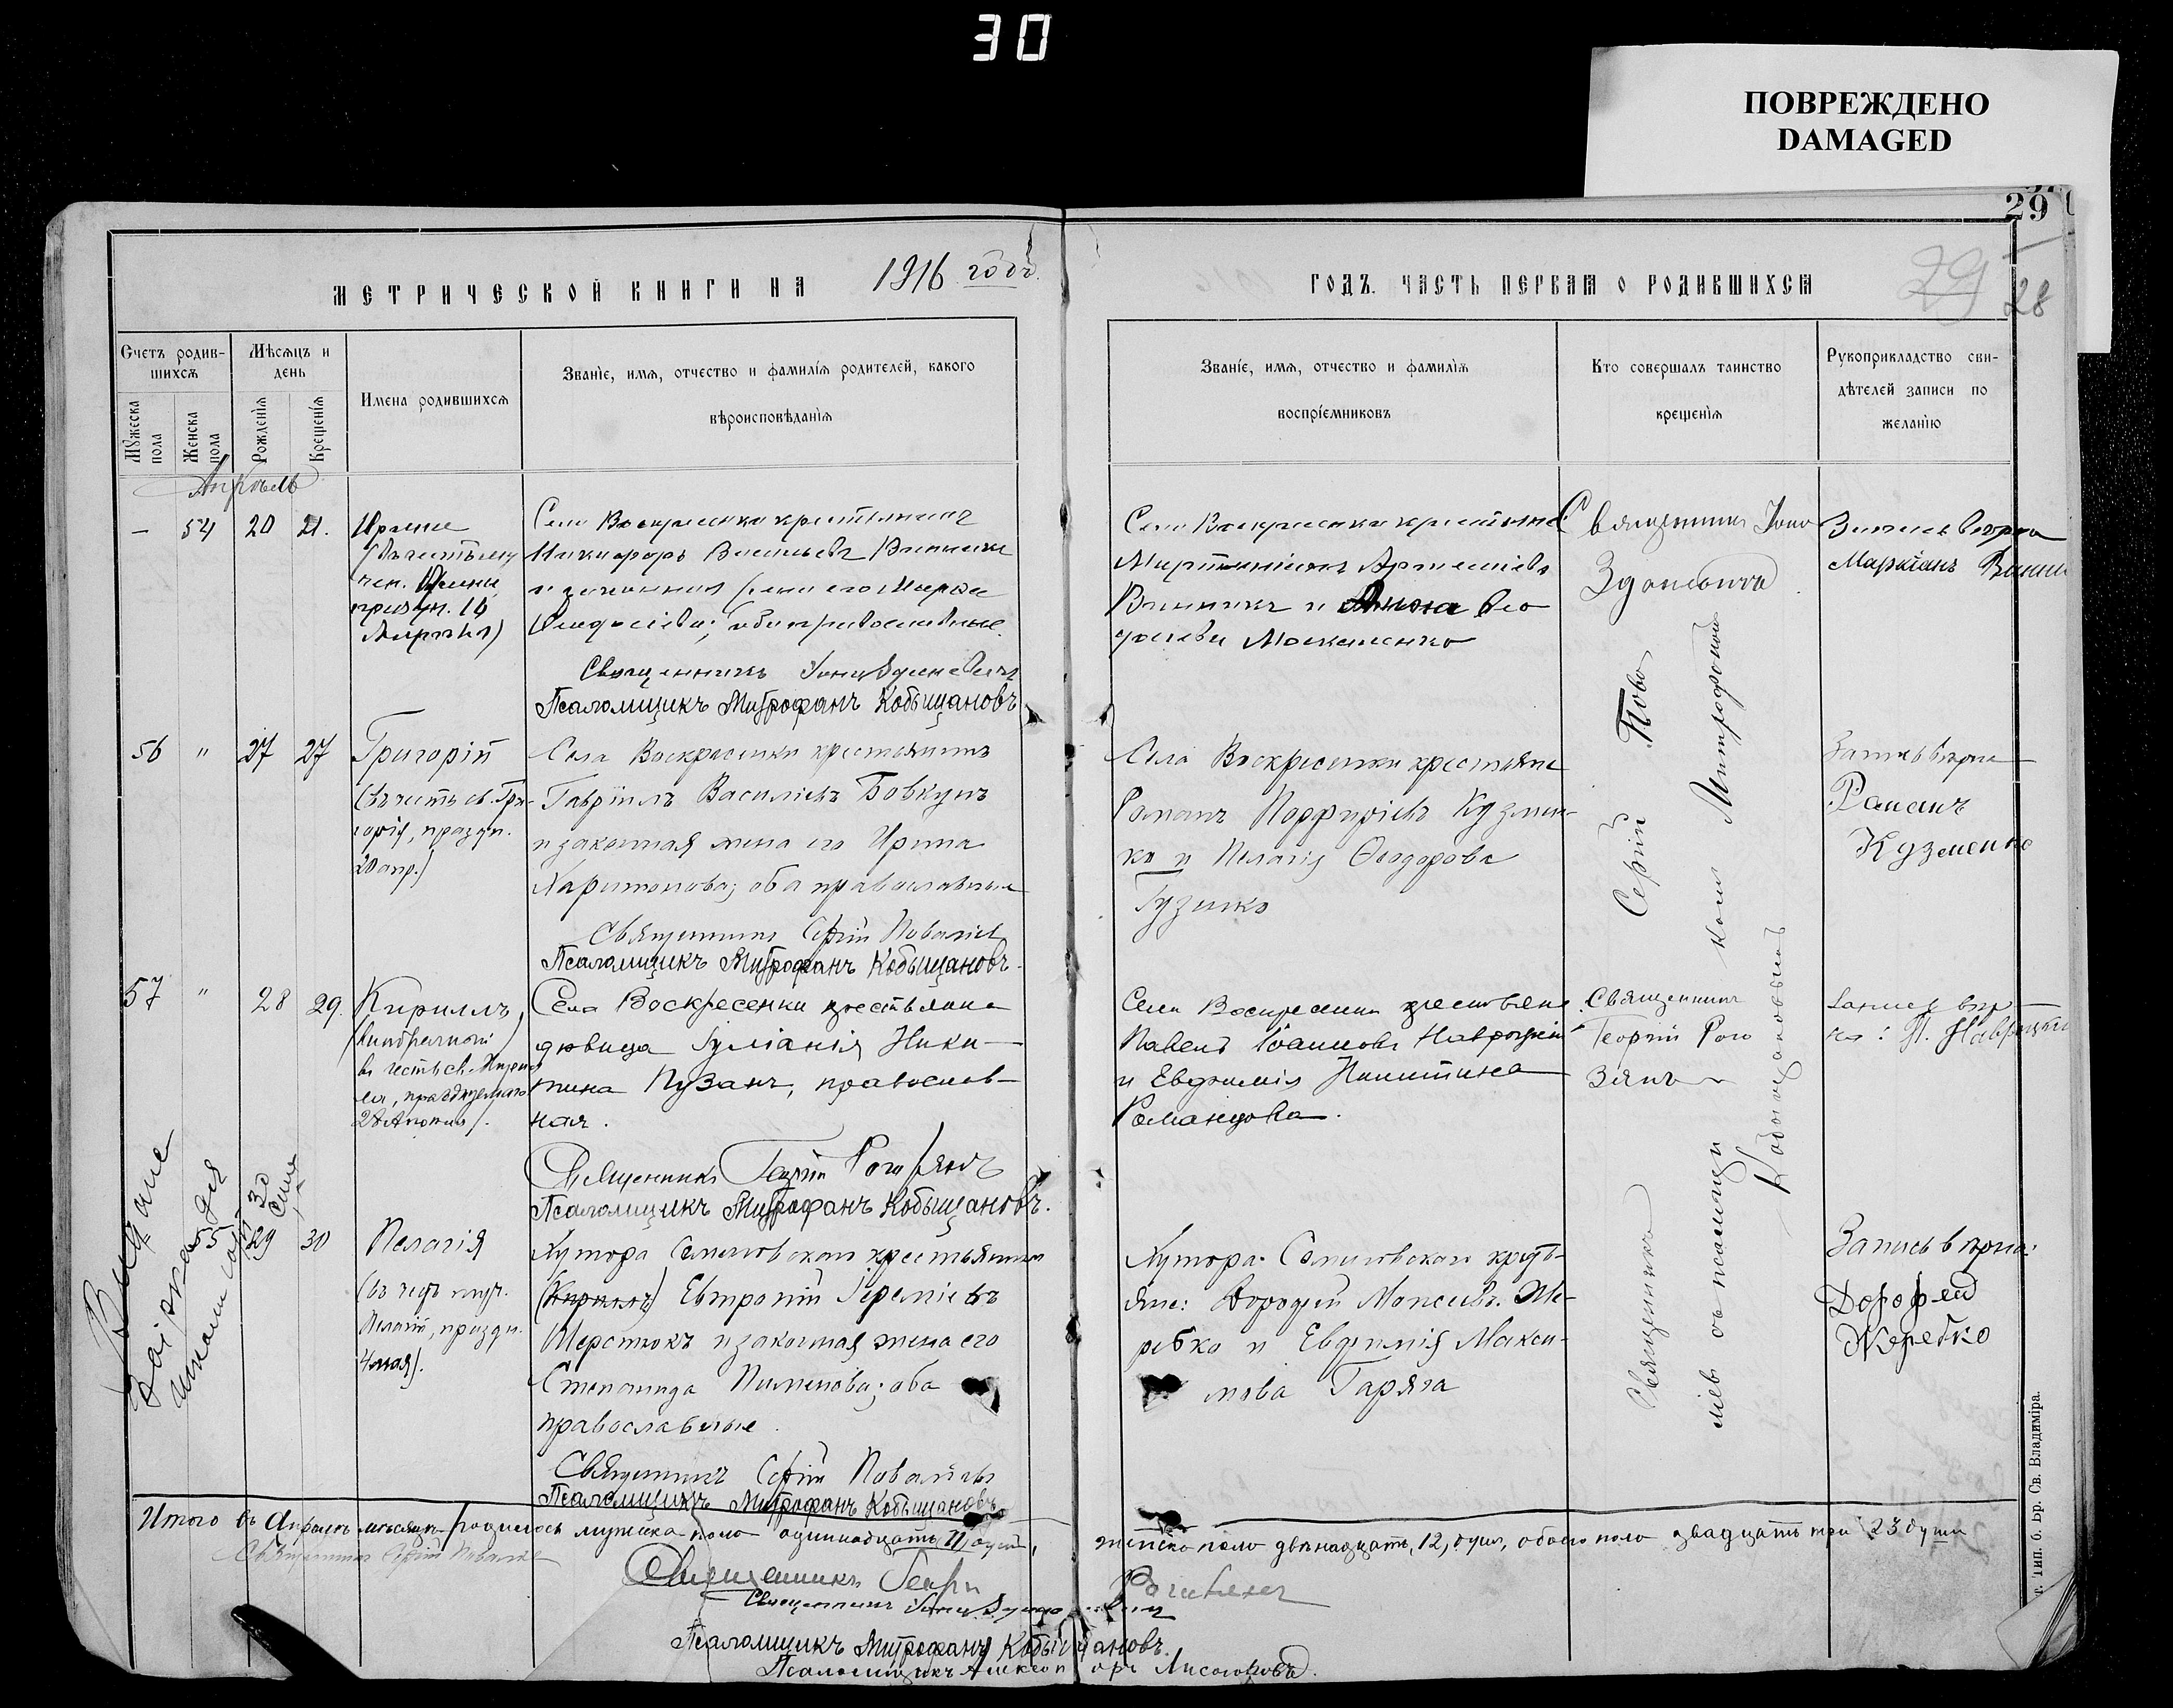 30
ПОВРЕЖДЕНО
DAMAGED
29
29
28
МЕТРИЧЕСКОЙ КНИГИ НА 1916 годъ.
ГОДЪ. ЧАСТЬ ПЕРВАЯ О РОДИВШИХСЯ
Счетъ родив-
шихся
Мужеска пола
Женска пола
Мѣсяцъ и
день
Рожденія
Крещенія
Имена родившихся
Званіе, имя, отчество и фамилія родителей, какого
вѣроисповѣданія
Званіе, имя, отчество и фамилія
воспріемниковъ
Кто совершалъ таинство
крещенія
Рукоприкладство сви-
дѣтелей записи по
желанію
Апрѣль
— 54 20 21.
Ирина
праздн. 16
Апрѣля)
Села Воскресенки крестьянинъ
Никифоръ Васильевъ Винникъ
и законная жена его Марѳа
Ѳеодосіева; оба православные.
Священникъ Іона Здановичъ
Псаломщикъ Митрофанъ Кобыщановъ
Села Воскресенки крестьяне
Артеміевъ
Винникъ и Анна Ѳео
досіева Москаленко
Священникъ Іона
Здановичъ
Запись вѣрна
Маркіанъ Винни
56 " 27 27
Григорій
(въ честь св. Гри-
горія, праздн.
20 апр.)
Села Воскресенки крестьянинъ
Гавріилъ Василіевъ Бовкунъ
и законная жена его Ирина
Харитонова; оба православные
Священникъ Сергій Поваліевъ
Псаломщикъ Митрофанъ Кобыщановъ.
Села Воскресенки крестьяне
Романъ Порфиріевъ Кузмен-
ко и Пелагія Ѳеодорова
Гузенко
Запись вѣрна
Романъ
Кузменко
57 " 28 29.
Кириллъ,
(внѣбрачный)
въ честь св. Кирил
ла, празднуемаго
28 Апрѣля).
Села Воскресенки крестьянка
дѣвица Іуліанія Ники-
тина Пузанъ, православ-
ная.
Священникъ Георгій Рогозянъ
Псаломщикъ Митрофанъ Кобыщановъ.
Села Воскресенки крестьяне
Павелъ Іоанновъ Навроцкій
и Евфимія Никитина
Романцова.
Священникъ
Георгій Рого
зянъ
Запись вѣр-
на: П. Навроцкій
55 29 30
Пелагія
(въ честь муч.
Пелагіи, праздн.
4 мая).
Хутора Семеновскаго крестьянинъ
(Кириллъ) Евтропій Іереміевъ
Шерстюкъ и законная жена его
Степанида Пименова; оба
православные.
Священникъ Сергій Поваліевъ
Псаломщикъ Митрофанъ Кобыщановъ
Хутора Семеновскаго кресть-
яне: Дорофей Моисеевъ Же-
ребко и Евфимія Макси-
мова Гаряга
Священникъ Сергій Пова
ліевъ съ псаломщи комъ Митрофаномъ
Кобыщановымъ
Запись вѣрна:
Дорофей
Жеребко
Итого въ Апрѣлѣ мѣсяцѣ родилось мужска пола одиннадцать, 11, душъ,
женска пола двѣнадцать, 12, душъ, обоего пола двадцать три 23 души
Священникъ Сергій Поваліевъ
Священникъ Георгій Рогозянъ
Священникъ Іона Здановичъ
Псаломщикъ Митрофанъ Кобыщановъ.
Псаломщикъ Лисогоровъ.
г. Тип. б. Бр. Св. Владиміра.